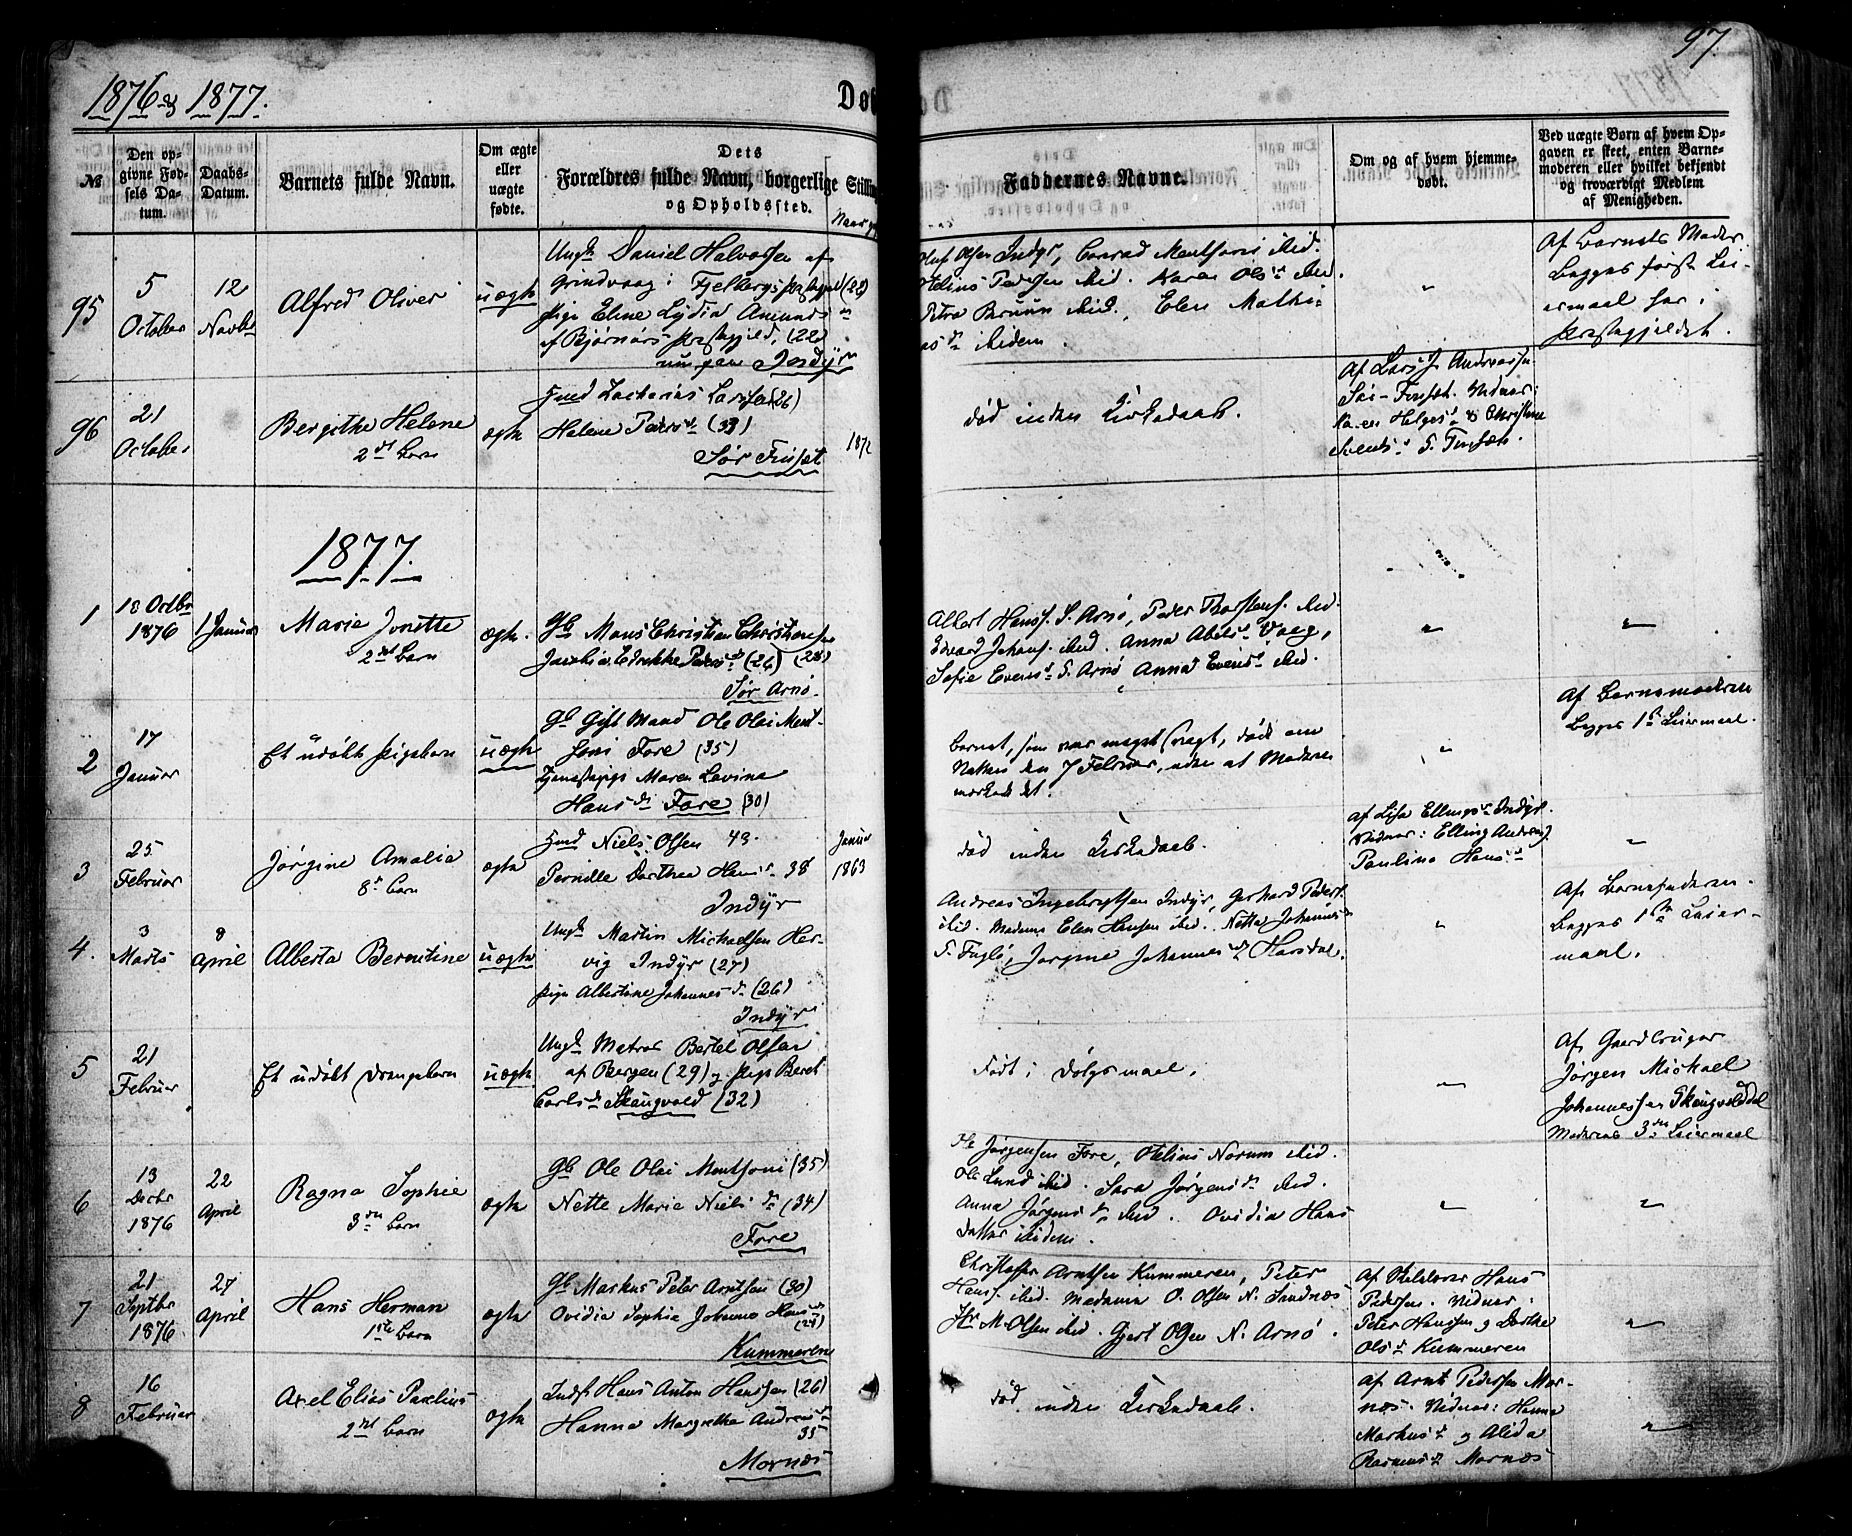 97.
1876 og 1877.
Dø
No
Den opgivne Fødsels Datum.
Daabs-Datum.
Barnets fulde Navn.
Om ægte eller uægte fødte.
Dets Forældres fulde Navn, borgerlige Stilling og Opholdssted.
Faddernes Navne.
Om og af hvem hjemmedøbt.
Ved uægte Børn af hvem Opgaven er skeet, enten Barnemoderen eller hvilket bekjendt og troværdigt Medlem af Menigheden.
95
5 October
12 Novbr
Alfred Oliver
uægte
Ungk. Daniel Halvorsen af
Grindvaag i Fjelbergs Præstegjeld (22)
Pige Eline Lydia Amunds
af Bjørnørs Præstegjeld, (22)
Indyr
Oluf Olsen Indyr, Conrad Mentsoni ibid.
Helius Pedersen ibid. Karen Olsdr ibid.
Petra Bruun ibid., Elen Mathi-
asdr ibidem.
"
Af Barnets Moder.
Begges første Lei-
ermaal her i
Præstegjeldet.
96
21 October
Bergithe Helene
2det Barn
ægte
Zacharias Larsen (26)
Helene Pedersdr (33)
Sør Finset
187
død inden Kirkedaab.
Af Lars J. Andreassen
Sør-Finset. Vidner:
Karen Helgesdr & Christine
Sør Finset.
1877.
1
18 Octbr 1876
1 Januar
Marie Jonette
2det Barn
ægte.
Gb Mons Christian Christensen
Pedersdr (26) (28)
Sør Arnø.
Albert Hanss. S. Arnø, Peder Thorstens. ibid.
Edvard Johans. ibid. Anna Abelsdr Vaag,
Sofie Evensdr S. Arnø, Anna Evensdr ibid.
"
"
2
17 Januar
Et udøbt Pigebarn
uægte
Gb Gift Mand Ole Olai Ment-
soni Fore (35)
Tjenestepige Maren Lovine
Hansdr Fore (30)
Barnet, som var meget svagt, døde om
Natten den 7 Februar, uden at Moderen
mærkede det.
"
Af Barnemoderen
Begges 1ste Leiermaal.
3
25 Februar
Jørgine Amalia
8de Barn
ægte
Niels Olsen 43.
Pernille Dorthea Hansdr 38
Indyr
Januar 1863
død inden Kirkedaab.
af Lisa Ellingsdr Indyr.
Vidner: Elling Andreas.
Pauline Hansdr
"
4.
3 Marts
8 April
Alberta Berntine
uægte
Ungk. Martin Michaelsen Her-
vig Indyr (27)
Pige Albertine Johannesdr (26)
Indyr
Andreas Ingebrigtsen Indyr, Gerhard Peders.
ibid. Madame Elen Hansen ibid. Netta Johannesdr
S. Fuglø, Jørgine Johannesdr Horsdal.
"
Af Barnefaderen.
Begges 1ste Leier-
maal.
5
21 Februar
Et udøbt Drengebarn
uægte
Ungk. Matros Bertel Olsen
af Bergen (29) og Pige Beret
Carlsdr Skaugvold (32)
Født i Dølgsmaal.
"
Af Gaardbruger
Jørgen Michael
Johannessen Skaugvolddal
Moderens 3die Leiermaal
6
13 Decbr 1876
22 April
Ragna Sophie
3die Barn
ægte
Gb Ole Olai Mentsoni (35)
Nette Marie Nielsdr (34)
Fore
Jørgensen Fore, Helius Norum ibid.
Ole Lund ibid. Sara Jørgensdr ibid.
Anna Jørgensdr ibid. Ovidia Hans
datter ibidem.
"
"
7
21 Septbr 1876
27 April
Hans Herman
1ste Barn
ægte
Gb Markus Peter Arntsen (30)
Ovidia Sophie Johanne Hansdr
(28)
Kummeren
Christoffer Arntsen Kummeren, Peter
Hanss. ibid. Madame O. Olsen N. Sandnæs
Hr M. Olsen ibid. Gjert Olsen N. Arnø.
Af Skolelærer Hans
Pedersen. Vidner:
Peter Hanssen og Dorthe
Olsdr Kummeren
"
8
16 Februar
Axel Elias Paulius
2det Barn
ægte
Indst Hans Anton Hanssen (26)
Hanna Margrethe Andreasdr
35
Mornæs
død inden Kirkedaab.
af Arnt Pedersen Mor-
næs. Vidner: Hanna
Markusdr og Alida
Rasmusdr Mornæs
"